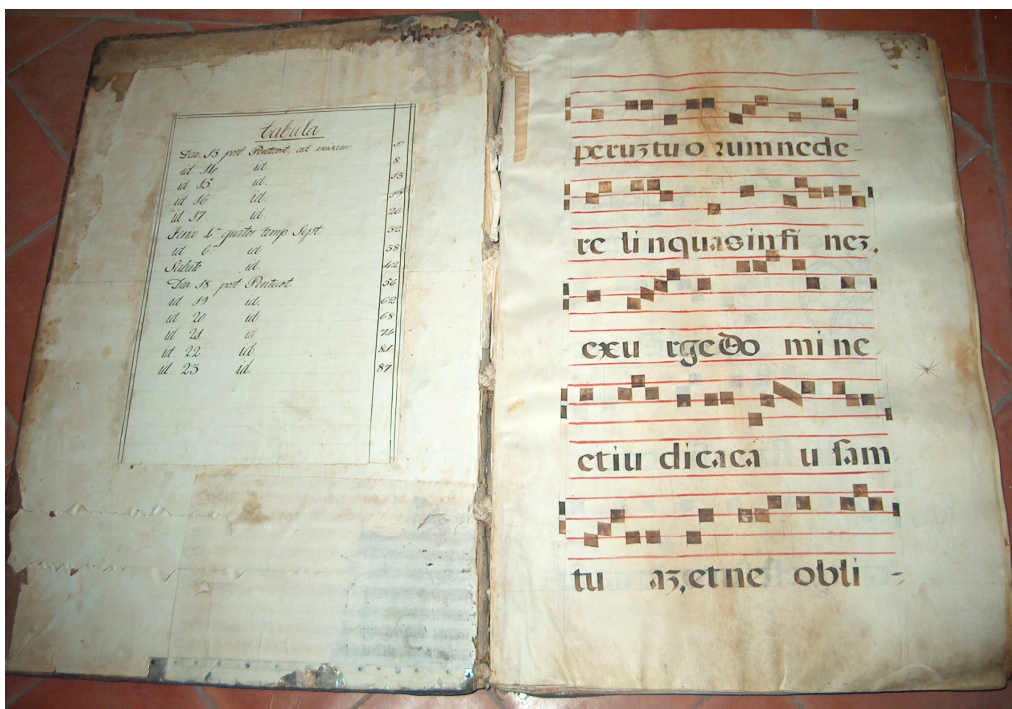 tabula
Dca. 15 post Pentecost. ad missam 1
id 14 id. 8
id 15 id. 13
id 16 id. 19
id 17 id. 26
Feria 4ª quator temp Sept 32
id 6ª id 38
Sabato id. 42
Dca 18 post Pentecost. 56
id 19 id. 62
id 20 id. 68
id 21 id 74
id 22 id. 81
id. 23 id. 87
peruztuo rumnede-
re linquasinfi nez.
exu rgedo mi ne
etiu dicaca u sam
tu az,etne obli -